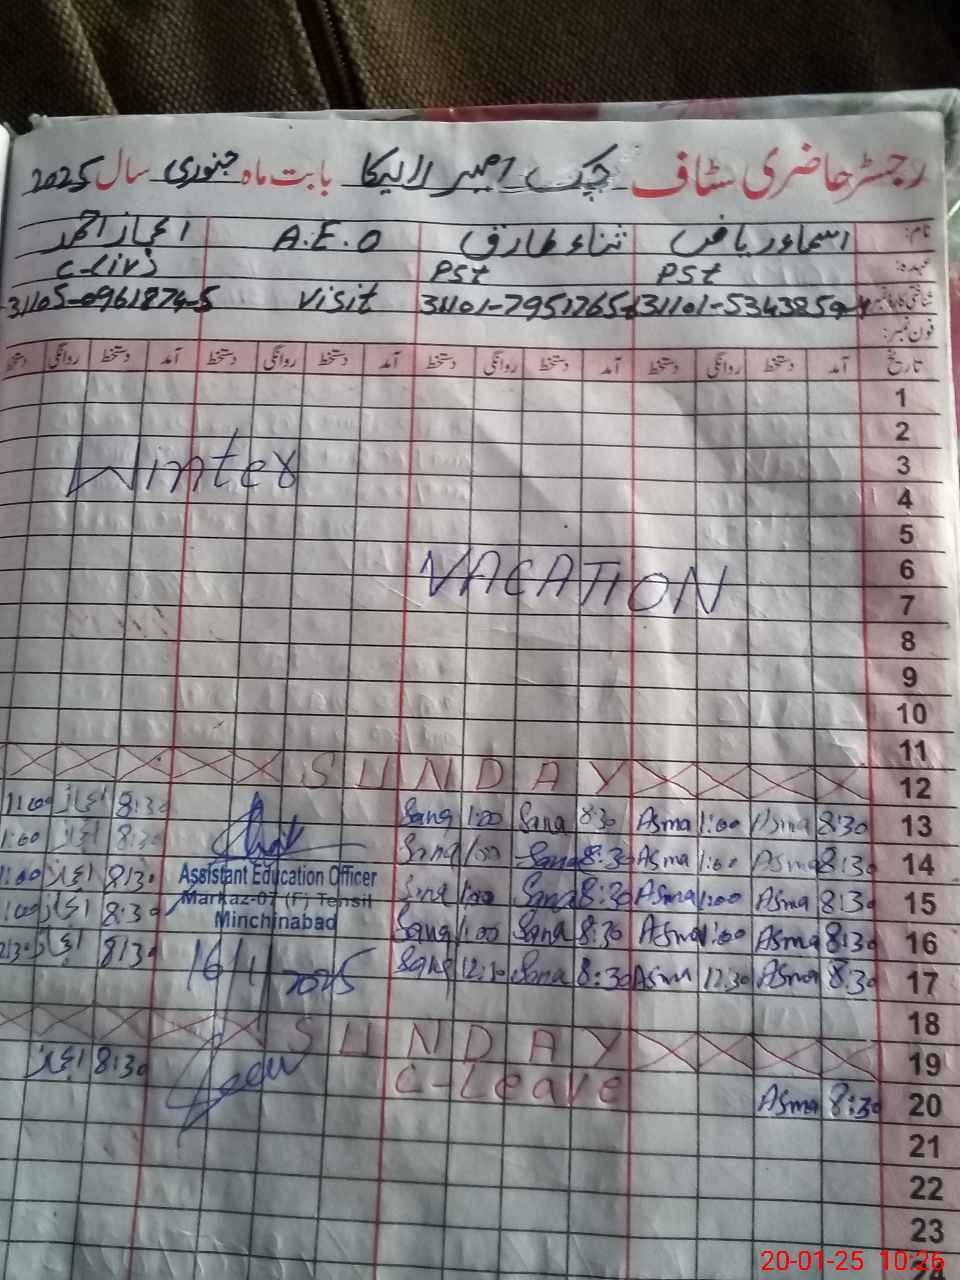 رجسٹر حاضری سٹاف چک امیر لالیکا بابت ماہ جنوری سال 2025
نام: اسماء ریاض ثناء طارق A.E.O اعجاز احمد
عہدہ: PSt PSt C-Iv
شناختی کارڈ نمبر Visit 31105-0961874-5
فون نمبر:
تاریخ آمد دستخط روانگی دستخط آمد دستخط روانگی دستخط آمد دستخط روانگی دستخط آمد دستخط روانگی دستخط
1
2
3
Winter
4
5
6
VACATION
7
8
9
10
11
SUNDAY
12
13 8:30 Asma 1:00 Asma 8:30 Sana 1:00 Sana 8:30 اعجاز 1:00
14 8:30 Asma 1:00 Asma 8:30 Sana 1:00 Sana 8:30 اعجاز 1:00
Assistant Education Officer
15 8:30 Asma 1:00 Asma 8:30 Sana 1:00 Sana 8:30 اعجاز 1:00
Markaz-07 (F) Tehsil
Minchinabad
16 8:30 Asma 1:00 Asma 8:30 Sana 1:00 Sana 8:30 اعجاز 1:00
17 8:30 Asma 12:30 Asma 8:30 Sana 12:30 Sana 16/1/2025 8:30 اعجاز 12:30
18
SUNDAY
19
20 8:30 Asma C-Leave 8:30 اعجاز
21
22
23
24
20-01-25 10:26